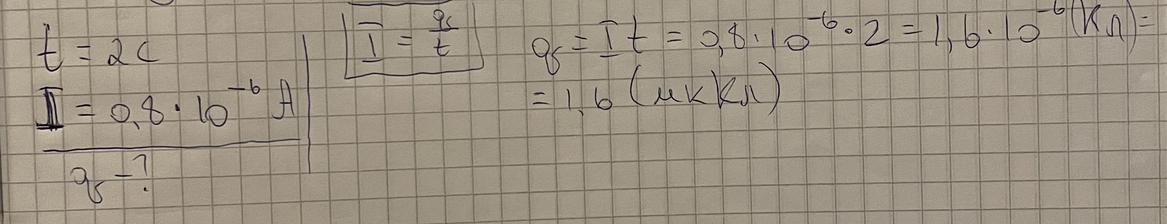 t = 2c
I = 0,8 · 10⁻⁶ A
q – ?
I = q/t
q = I t = 0,8 · 10⁻⁶ · 2 = 1,6 · 10⁻⁶ (Кл) =
= 1,6 (мкКл)